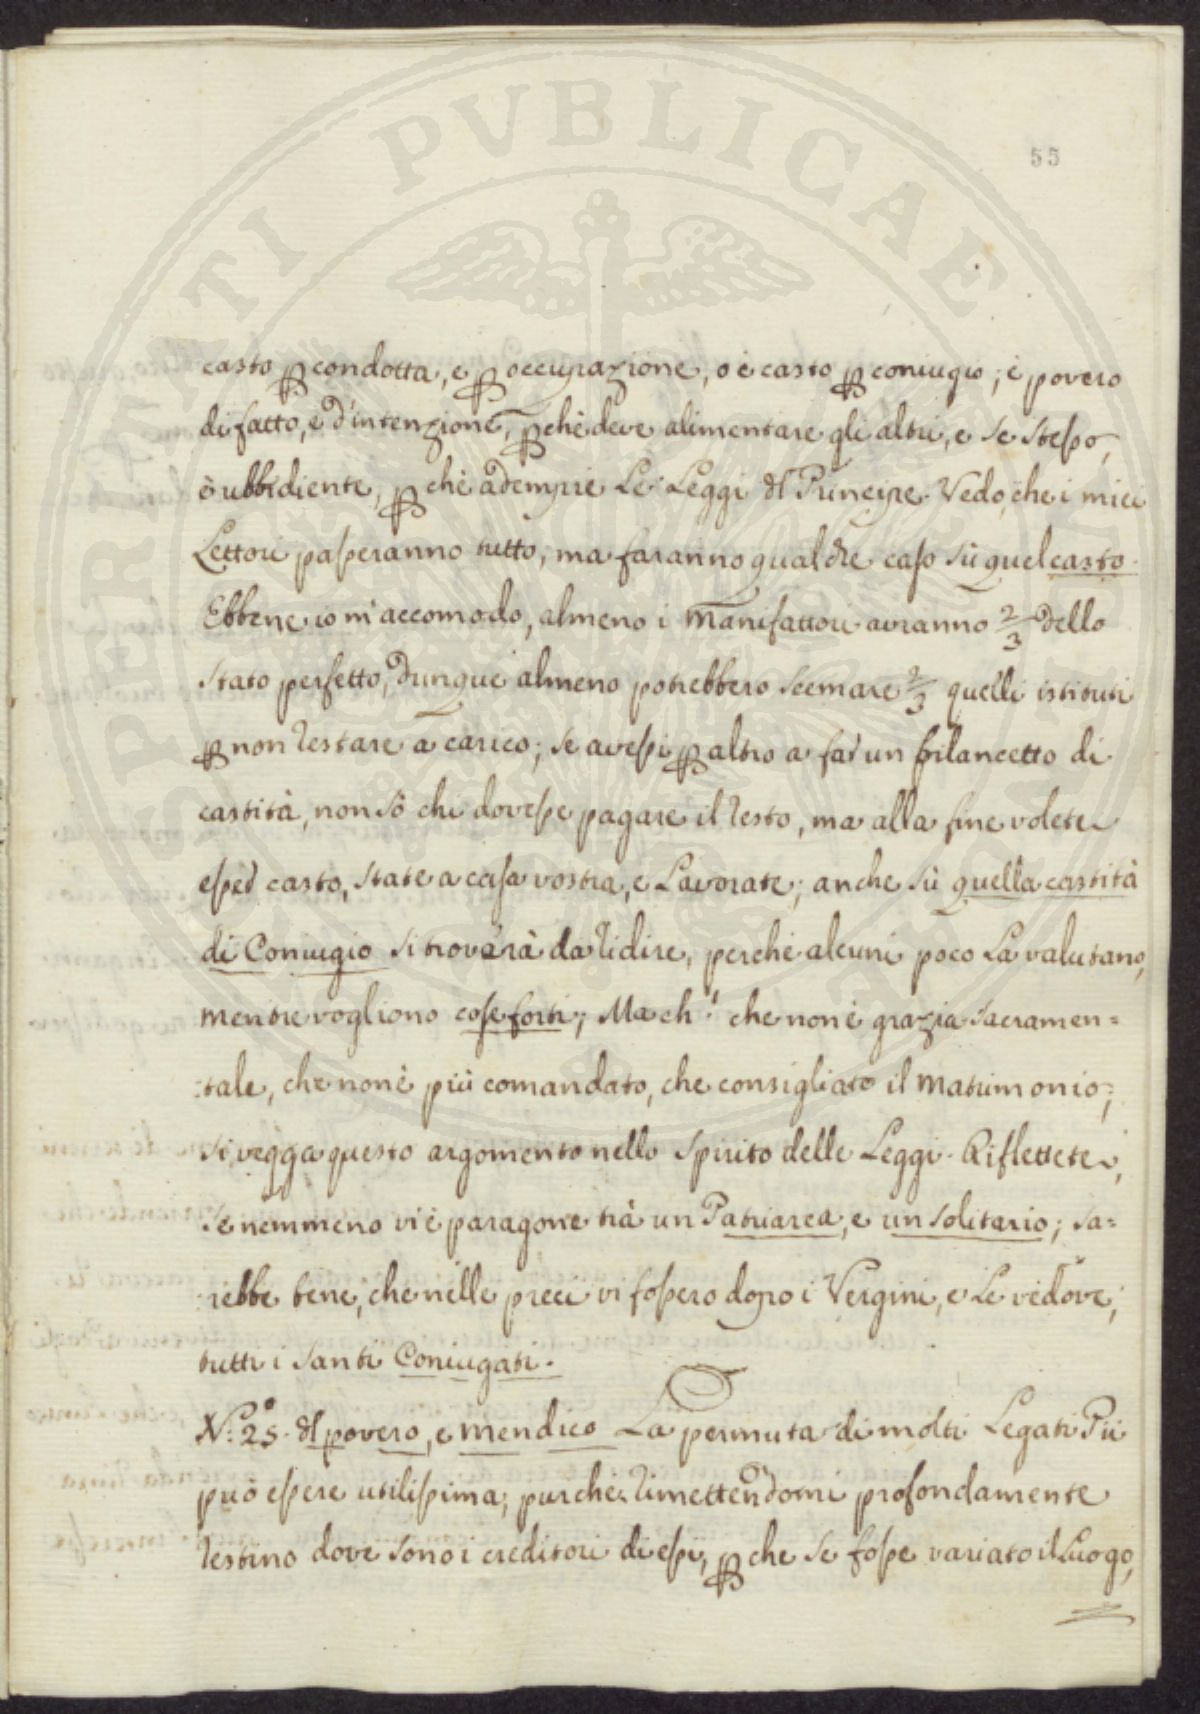 PROSPERITATI PVBLICAE
55
casto p condotta, e p occupazione, o è casto p coniugio; è povero
di fatto, e d'intenzione, pchè deve alimentare gli altri, e se stesso,
è ubbidiente, pchè adempie le Leggi dl Principe. Vedo, che i miei
Lettori passeranno tutto, ma faranno qualche caso sù quel casto.
Ebbene io m'accomodo, almeno i manifattori avranno 2/3 dello
stato perfetto, dunque almeno potrebbero scemare 2/3 quelli istituti
p non restare a carico; se avessi p altro a far un bilancetto di
castità, non sò chi dovesse pagare il resto, ma alla fine volete
esser casto, state a casa vostra, e lavorate; anche sù quella castità
di Coniugio si trovarà da ridire, perchè alcuni poco la valutano,
mentre vogliono cose forti; Ma ch'! che non è grazia sacramen=
:tale, che non è più comandato, che consigliato il matrimonio;
si vegga questo argomento nello Spirito delle Leggi. Riflettete,
se nemmeno vi è paragone trà un Patriarca, e un solitario; sa=
:rebbe bene, che nelle preci vi fossero dopo i Vergini, e le vedove,
tutti i santi Coniugati.
N.° 25. dl povero, e mendico La permuta di molti Legati Pii
può essere utilissima, purchè rimettendomi profondamente
restino dove sono i creditori di essi, pche se fosse variato il luogo,